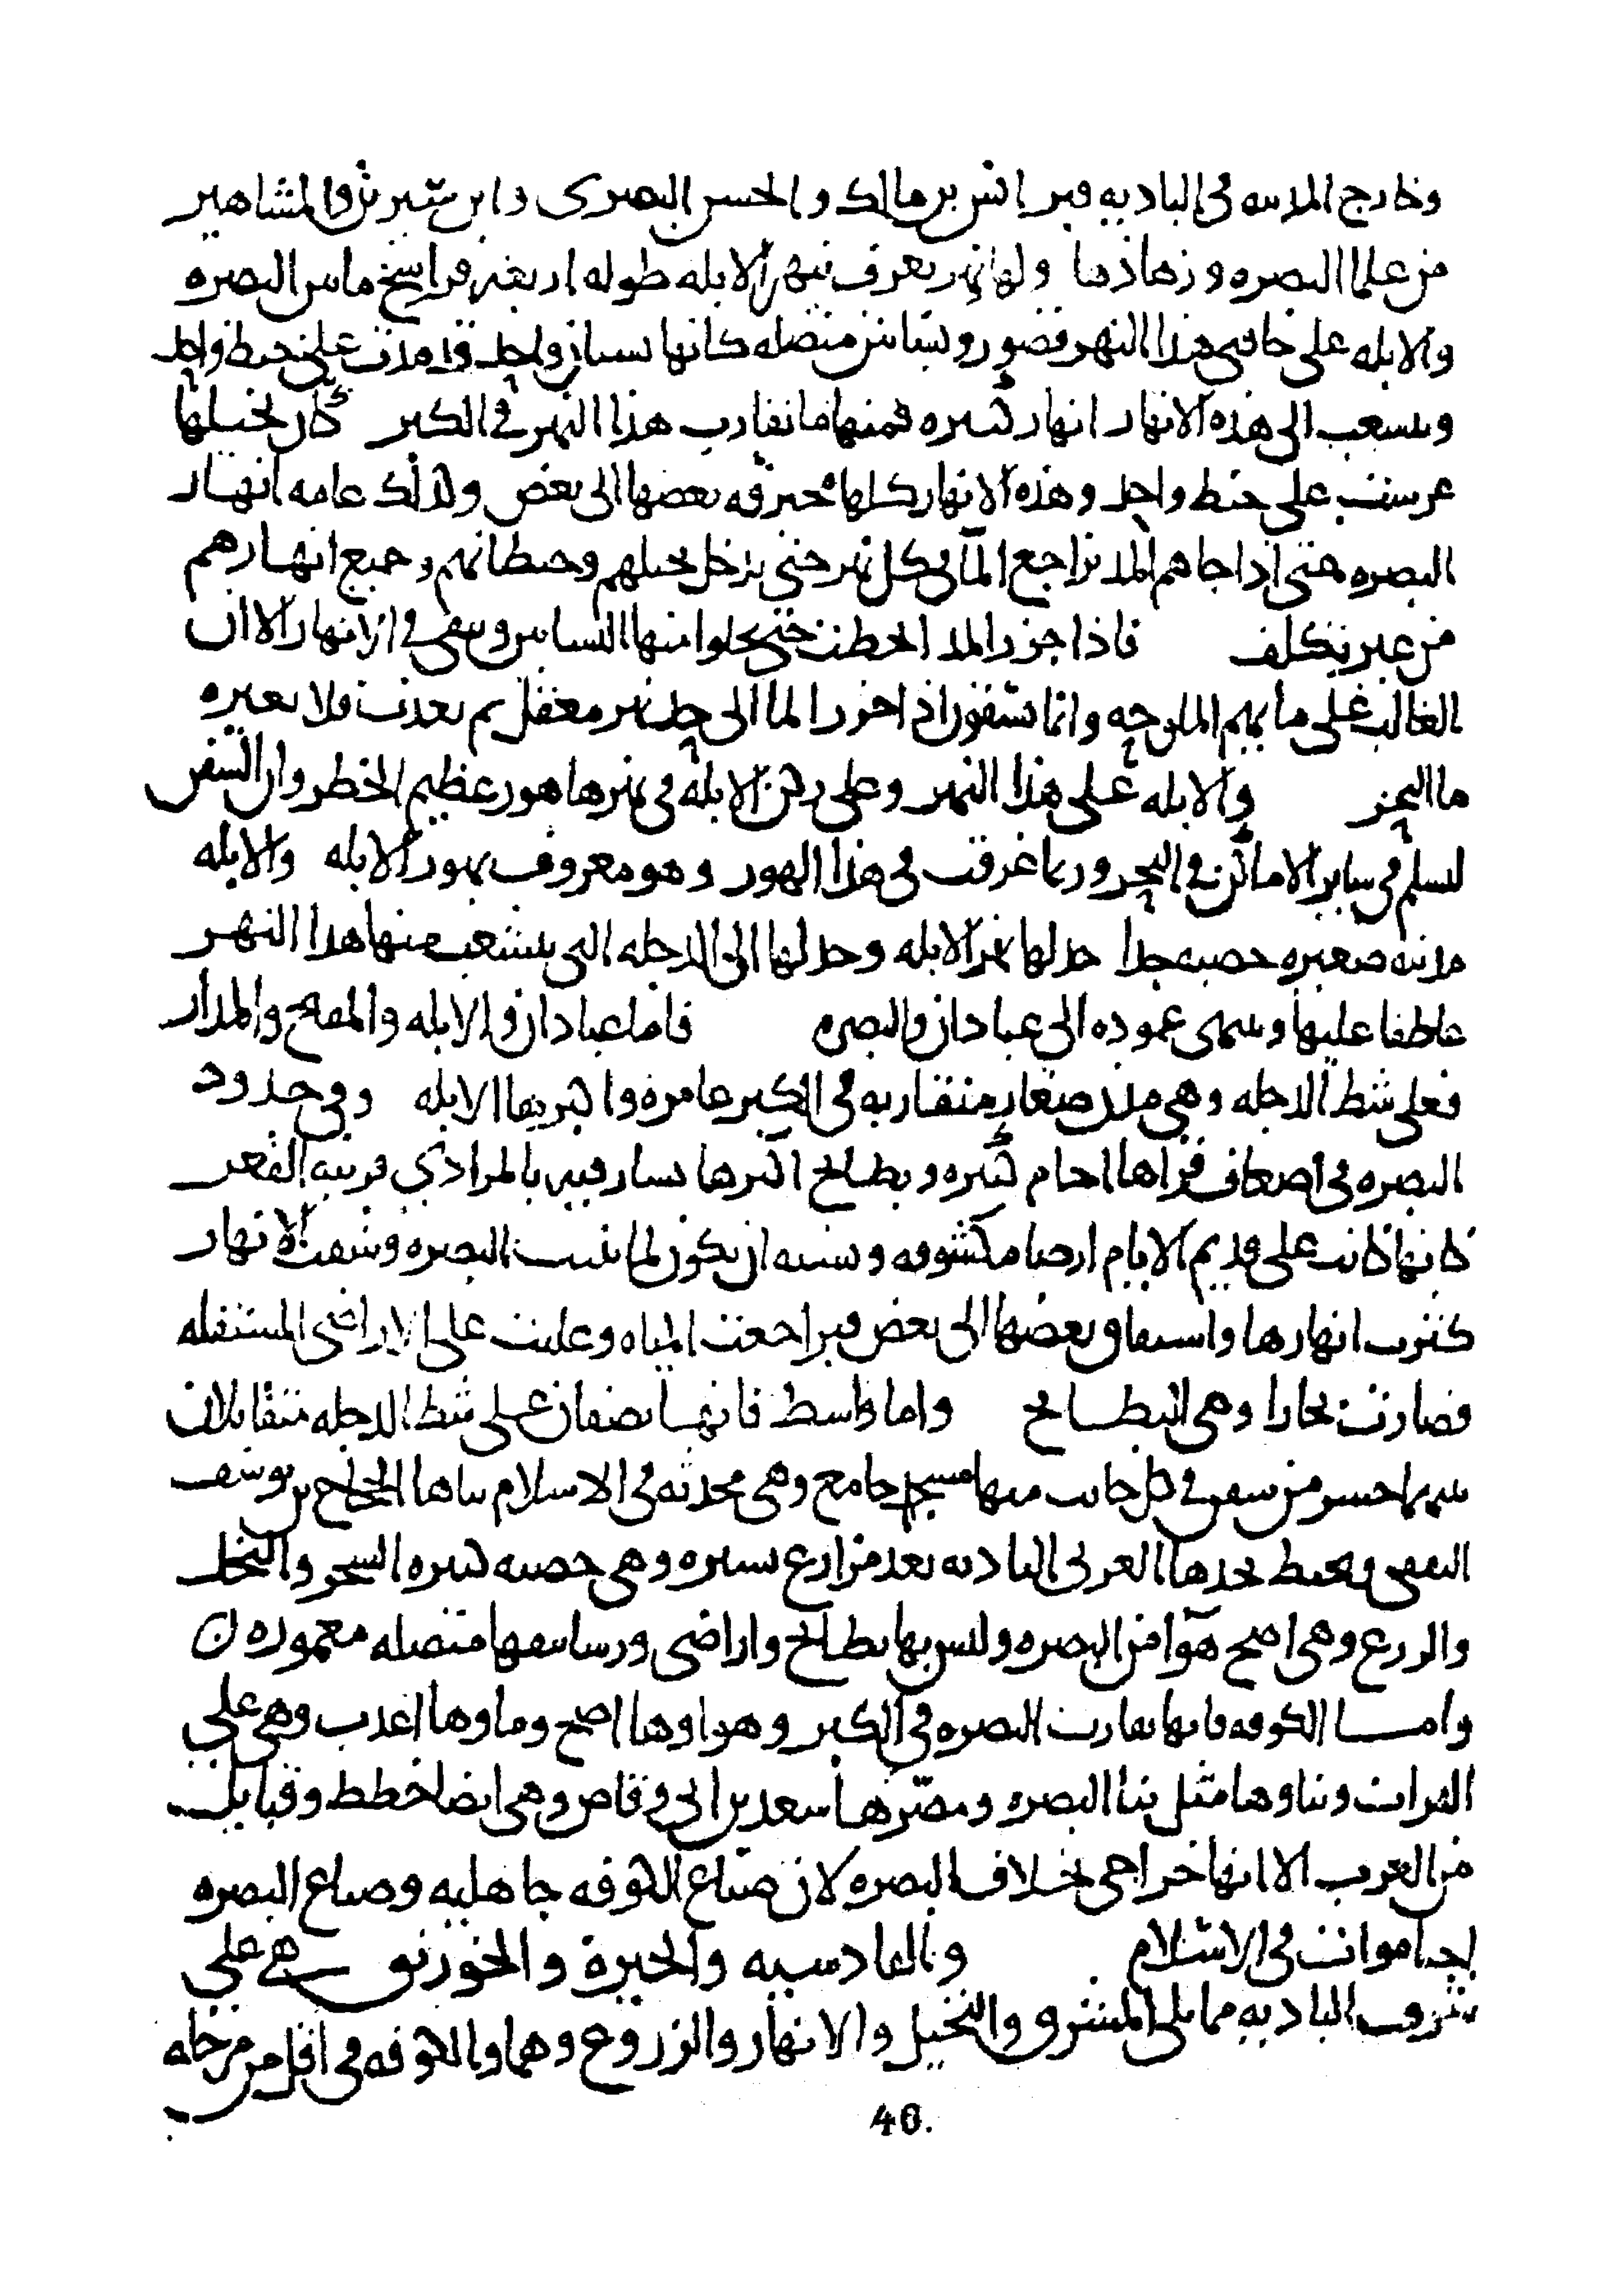 وخارج المدينه في الباديه قبر انس بن مالك والحسن البصرى وابن سيرين والمشاهير
من علما البصره وزهادها ولها نهر يعرف بنهر الابله طوله اربعه فراسخ ما بين البصره
والابله على حافتي هذا النهر قصور وبساتين متصله كانها بستان واحد قد مدت على خيط واحد
ويتشعب الى هذه الانهار انهار كثيره فمنها ما يقارب هذا النهر في الكبر كان نخيلها
غرست على خيط واحد وهذه الانهار كلها مخترقه بعضها الى بعض ولذلك عامه انهار
البصره حتى اذا جاهم المد تراجع المآ في كل نهر حتى يدخل نخيلهم وحيطانهم وجميع انهارهم
من غير تكلف فاذا جزر المد انحطت حتى يخلوا منها البساتين ويبقى في الانهار الا ان
الغالب على مايهم الملوحه وانما يستقون اذا جزر الما الى حد نهر معقل ثم يعذب فلا يغيره
ما البحر والابله على هذا النهر وعلى ركن الابله في نهرها هور عظيم الخطر وان السفن
لتسلم في ساير الاماكن في البحر وربما غرقت في هذا الهور وهو معروف بهور الابله والابله
مدينه صغيره خصبه جدا حد لها نهر الابله وحد لها الى الدجله التي يتشعب منها هذا النهر
عاطفا عليها وينتهى عموده الى عبادان والبصره فاما عبادان والابله والمفتح والمذار
فعلى شط الدجله وهي مدن صغار متقاربه في الكبر عامره واكبرها الابله وفي حدود
البصره في اضعاف قراها اجام كثيره وبطايح اكثرها يسار فيه بالمرادي قريبه القعر
كانها كانت على قديم الايام ارضا مكشوفه ويشبه ان يكون لما بنيت البصره وشقت الانهار
كثرت انهارها واستفاق بعضها الى بعض فتراجعت المياه وغلبت على الاراضى المستفله
فصارت بحارا وهي البطايح واما واسط فانها نصفان على شط الدجله متقابلان
بينهما جسر من سفن في كل جانب منها مسجد جامع وهي محدثه في الاسلام بناها الحجاج بن يوسف
الثقفي ويحيط بحدها الغربي الباديه بعد مزارع يسيره وهي خصبه كثيره الشجر والنخل
والزرع وهي اصح هوآ من البصره وليس بها بطايح واراضى ورساتيقها متصله معموره ن
واما الكوفه فانها تقارب البصره في الكبر وهواوها اصح وماوها اعذب وهي على
الفرات وبناوها مثل بنا البصره ومصّرها سعد بن ابي وقاص وهي ايضا خطط وقبايل
من العرب الا انها خراجي بخلاف البصره لان ضياع الكوفه جاهليه وضياع البصره
احيا موات في الاسلام والقادسيه والحيرة والخورنق هي على
شرف الباديه مما يلى المشرق والنخيل والانهار والزروع وهما والكوفه في اقل من مرحله
40.